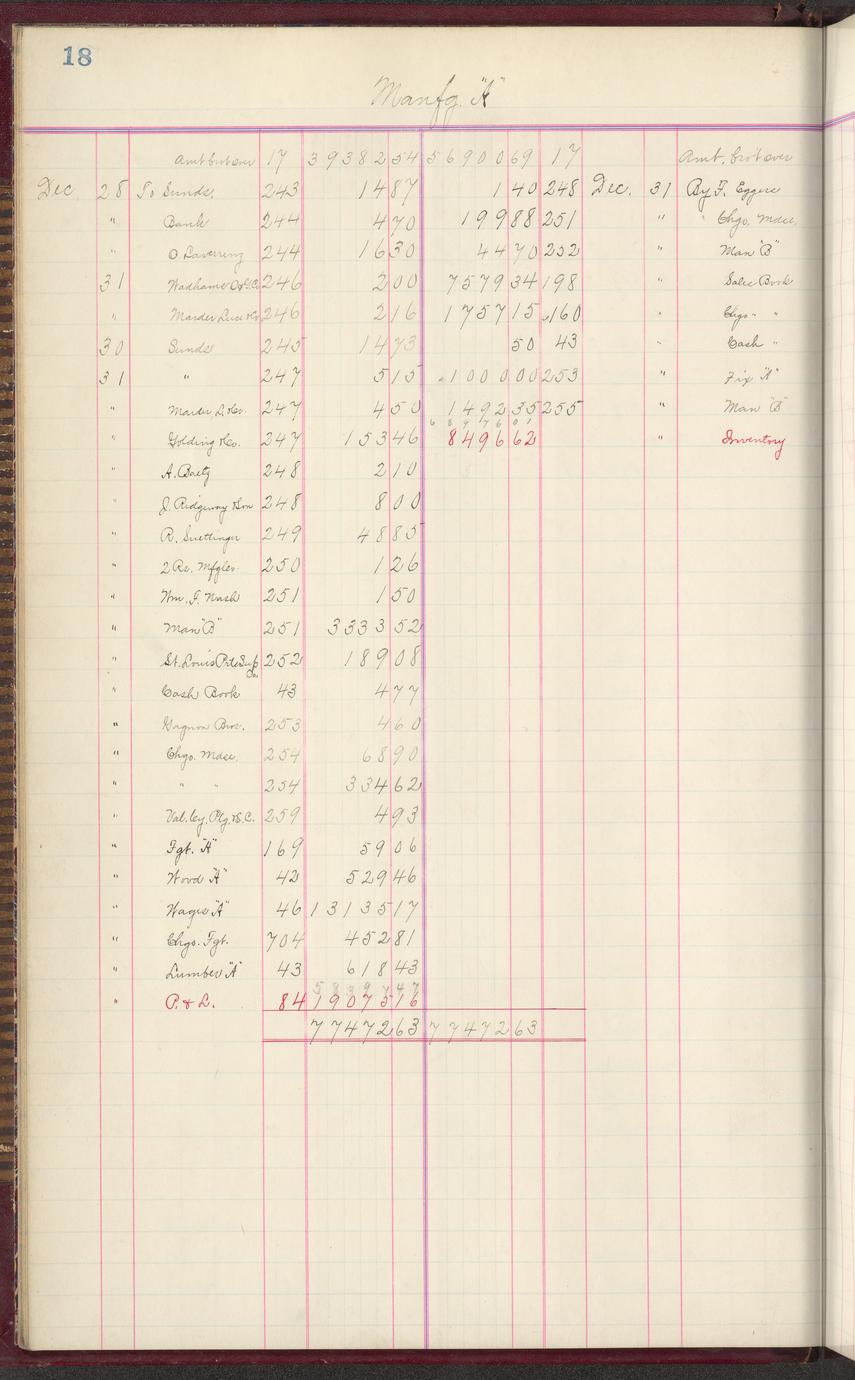 18
Manfg. "A"
Amt. brot over 17 39382 54 56900 69 17 Amt. brot over
Dec. 28 To Sunds. 243 14 87 1 40 248 Dec. 31 By F. Eggers
" Bank 244 4 70 199 88 251 " " Chgo. Mdse.
" O. Laverring 244 16 30 44 70 252 " Man "B"
31 Wadhams O & C 246 2 00 7579 34 198 " Sales Book
" Marder Luse & Co 246 2 16 1757 15 160 " Chgo " "
30 Sunds 245 14 73 50 43 " Cash "
31 " 247 5 15 1000 00 253 " Fix "A"
" Marder L. & Co. 247 4 50 1492 35 255 " Man "B"
68976 01
" Golding & Co. 247 153 46 8496 62 " Inventory
" A. Baetz 248 2 10
" J. Ridgeway & Son 248 8 00
" R. Suettinger 249 48 85
" 2 Rs. Mfg Co. 250 1 26
" Wm. F. Nash 251 1 50
" Man "B" 251 3333 52
" St. Louis Prts Sup Co. 252 189 08
" Cash Book 43 4 77
" Gagnon Bros. 253 4 60
" Chgo. Mdse. 254 68 90
" " " 254 334 62
" Val. Cy. Ptg. & C. 259 4 93
" Fgt. "A" 169 59 06
" Wood "A" 42 529 46
" Wages "A" 46 13135 17
" Chgo. Fgt. 704 452 81
" Lumber "A" 43 618 43
58397 47
" P. & L. 84 19075 16
77472 63 77472 63